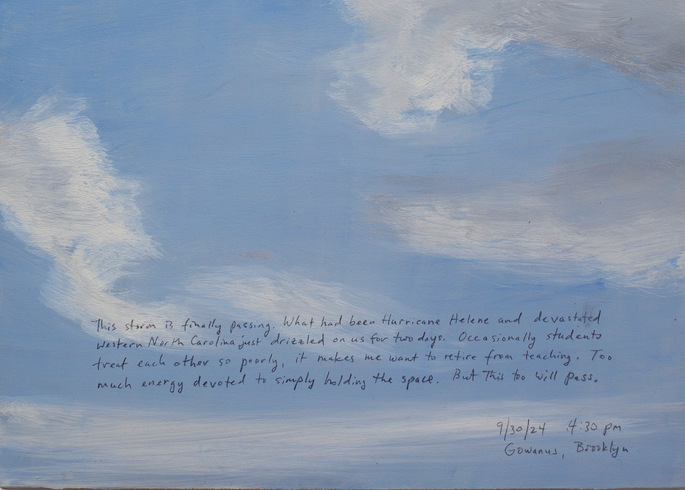 This storm is finally passing. What had been Hurricane Helene and devastated
Western North Carolina just drizzled on us for two days. Occasionally students
treat each other so poorly, it makes me want to retire from teaching. Too
much energy devoted to simply holding the space. But This too will pass.
9/30/24 4:30 pm
Gowanus, Brooklyn